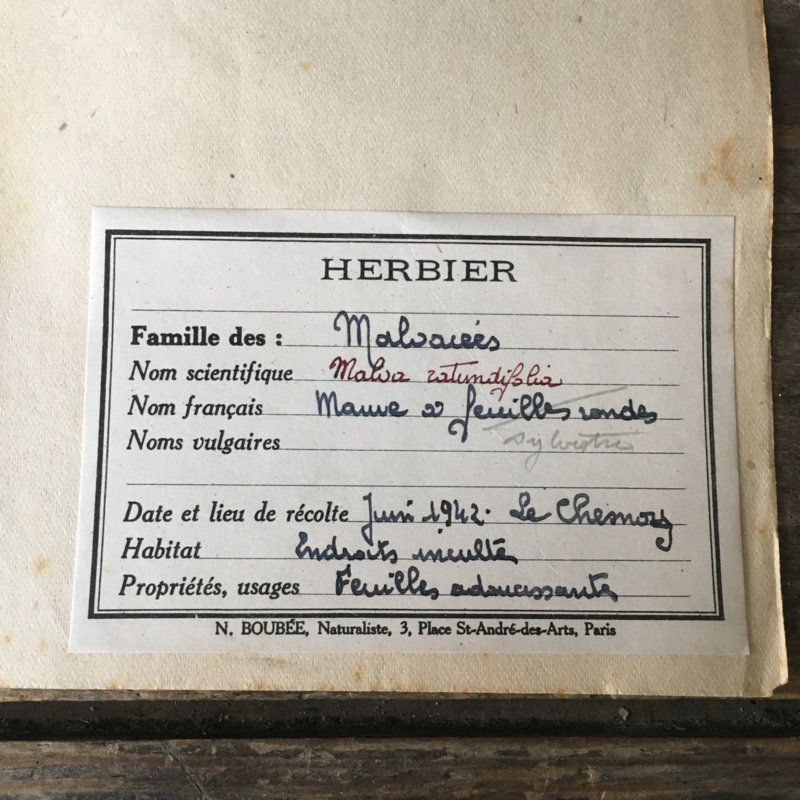 HERBIER
Famille des : Malvacées
Nom scientifique Malva rotundifolia
Nom français Mauve à feuilles rondes
Noms vulgaires sylvestris
Date et lieu de récolte Juin 1942. Le Chesnoy
Habitat Endroits incultes
Propriétés, usages Feuilles adoucissantes
N. BOUBÉE, Naturaliste, 3, Place St-André-des-Arts, Paris